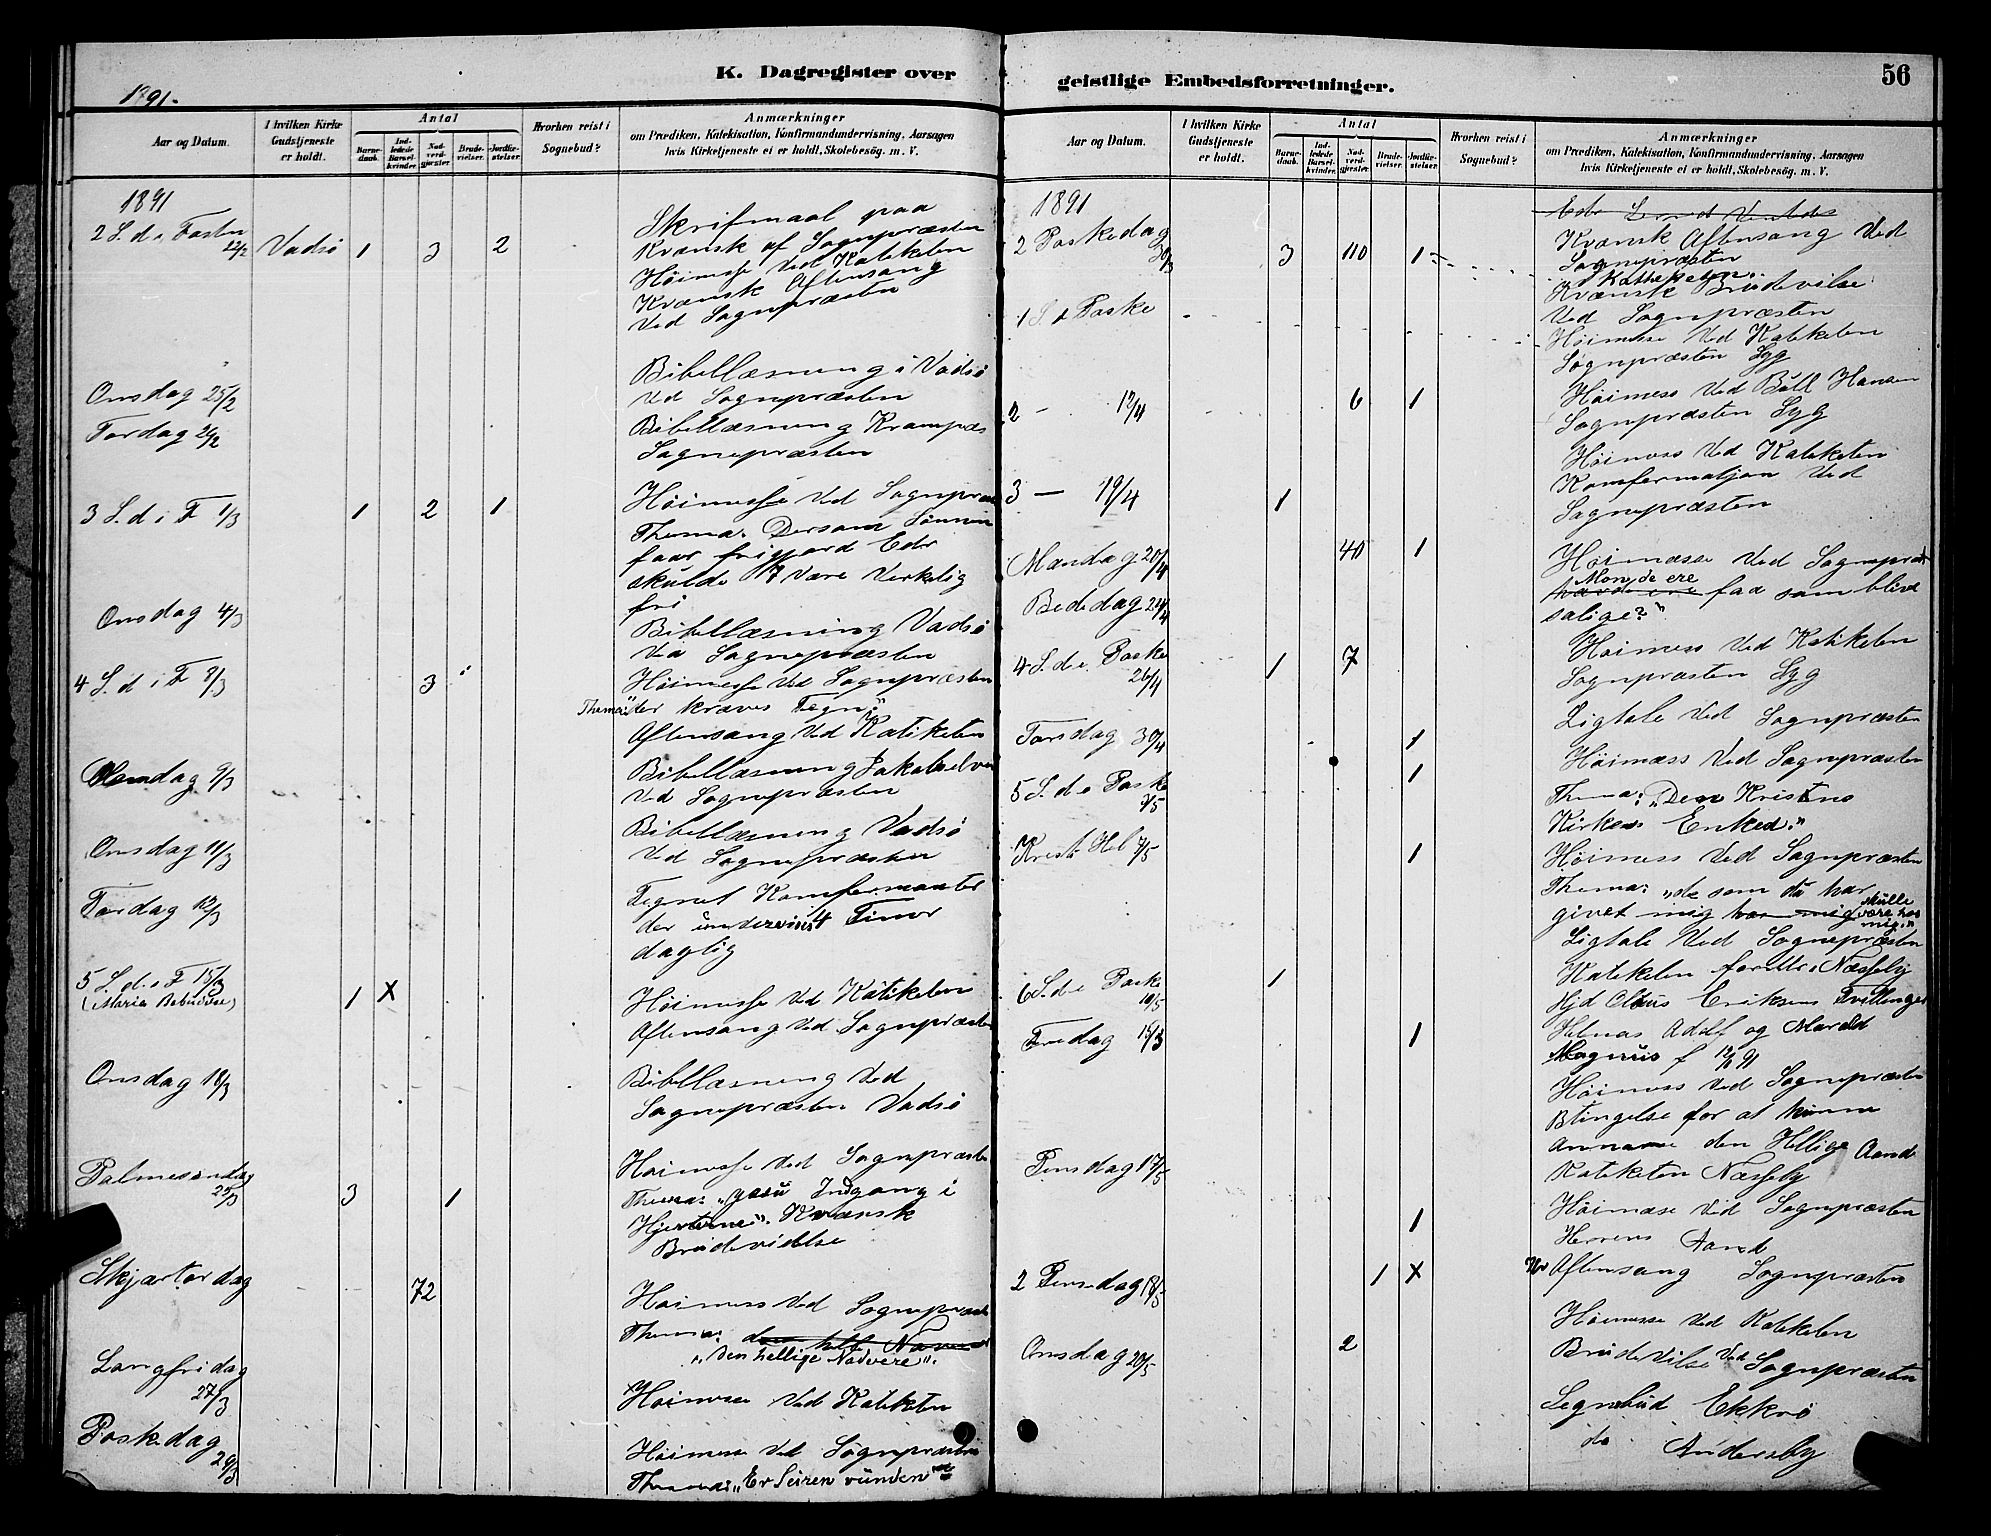 K. Dagregister over geistlige Embedsforretninger.
56
1891.
Aar og Datum.
I hvilken Kirke Gudstjeneste er holdt.
Antal
Barnedaab.
Indledede Barselkvinder.
Nadverdgjæster.
Brudevielser.
Jordfæstelser.
Hvorhen reist i Sognebud?
Anmærkninger
om Prædiken, Katekisation, Konfirmandundervisning, Aarsagen
hvis Kirketjeneste ei er holdt, Skolebesøg. m. V.
1891
2 S. d. i Fasten 22/2 Vadsö 1 3 2
Skrifmaal paa
Kvænsk af Sognepræsten
Høimesse ved Kateketen
Kvænsk Aftensang
Ved Sognepræsten
Onsdag 25/2
Bibellæsning i Vadsö
Ved Sognepræsten
Torsdag 26/2
Bibellæsning Krampæs
Sognepræsten
3 S. d i F 1/3 1 2 1
Høimesse Ved Sognepræs
Thema: Dersom Sønnen
faar frigjord Eder
skulde I være Verkelig
fri
Onsdag 4/3
Bibellæsning Vadsö
Ved Sognepræsten
4 S. d i F 8/3 3
Høimesse Ved Sognepræsten
Thema: "der kræves Tegn"
Aftensang Ved Katiketen
Mandag 9/3
Bibellæsning Jakobselven
Ved Sognepræsten
Onsdag 11/3
Bibellæsning Vadsö
Ved Sognepræsten
Tordag 12/3
Tegnet Konfermanter
der undervist 4 Timer
daglig
5 S. d. i F 15/3 1 X
(Maria
Høimesse Ved Katiketen
Aftensang Ved Sognepræsten
Onsdag 18/3
Bibellæsning Ved
Sognepræsten Vadsö
Palmesøndag 3 1
Høimesse Ved Sognepræsten
Thema: "Jesu Indgang i
Hjerterne". Kvænsk
Brudevidelse
Skjærtordag 72
Høimess Ved Sognepræsten
Thema:
"Den hellige Nadvere".
Langfridag 27/3
Høimesse Ved Katiketen
Paskedag 29/3
Høimesse Ved Sognepræsten
Thema: "Er Seiren vunden"
Aar og Datum.
I hvilken Kirke Gudstjeneste er holdt.
Antal
Barnedaab.
Indledede Barselkvinder.
Nadverdgjæster.
Brudevielser.
Jordfæstelser.
Hvorhen reist i Sognebud?
Anmærkninger
om Prædiken, Katekisation, Konfirmandundervisning, Aarsagen
hvis Kirketjeneste ei er holdt, Skolebesøg. m. V.
1891
2 Paskedag 30/3 3 110 1
Kvænsk Aftensang Ved
Sognepræsten
Katteketen
Kvænsk Brudevilse
Ved Sognepræsten
1 S. e Paske
Høimesse Ved Katiketen
Sognpræsten Syg
2 — 12/4 6 1
Høimess Ved Hansen
Sognpræsten Syg
3 — 19/4 1
Høimess Ved Katiketen
Komfermatjon Ved
Sognepræsten
Mandag 20/4 40 1
Bededag 24/4
Høimæsse Ved Sognepræst
Mon de ere
faa som blive
salige?"
4 S. d. e. Paske 26/4 1 7
Høimess Ved Katikelen
Sognpræsten Syg
Torsdag 30/4 1
Ligtale Ved Sognpræsten
5 S. d e Paske 3/5 1
Høimæss Ved Sognpræsten
Thema: "Den Kristens
Kirkes Enked."
Kristi Hel 7/5 1
Høimess Ved Sognpræsten
Thema: "de som du har
givet mig har mig skulle
være hos
mig."
Ligtale Ved Sognepræsten
6 S. d e Paske 10/5 1
Katiketen foretter Næsseby
Hjd Olaus Eriksens Tvillinger
Fredag 15/ 1
Helnas Adolf og Harald
Magnus f
Høimess Ved Sognepræsten
Btingelse for at kunne
annamme den Hellige Aand
Pinsdag 17/5
Katiketen Næsseby
Høimæse Ved Sognpræsten
1
Herrens Aand
2 Pinsedag 18/5 1 X
Aftensang Sognpræsten
Høimesse Ved Katiketen
Onsdag 20/5 2
Brudevilse Ved Sognpræsten
Sognebud Ekkrö
do Andersby